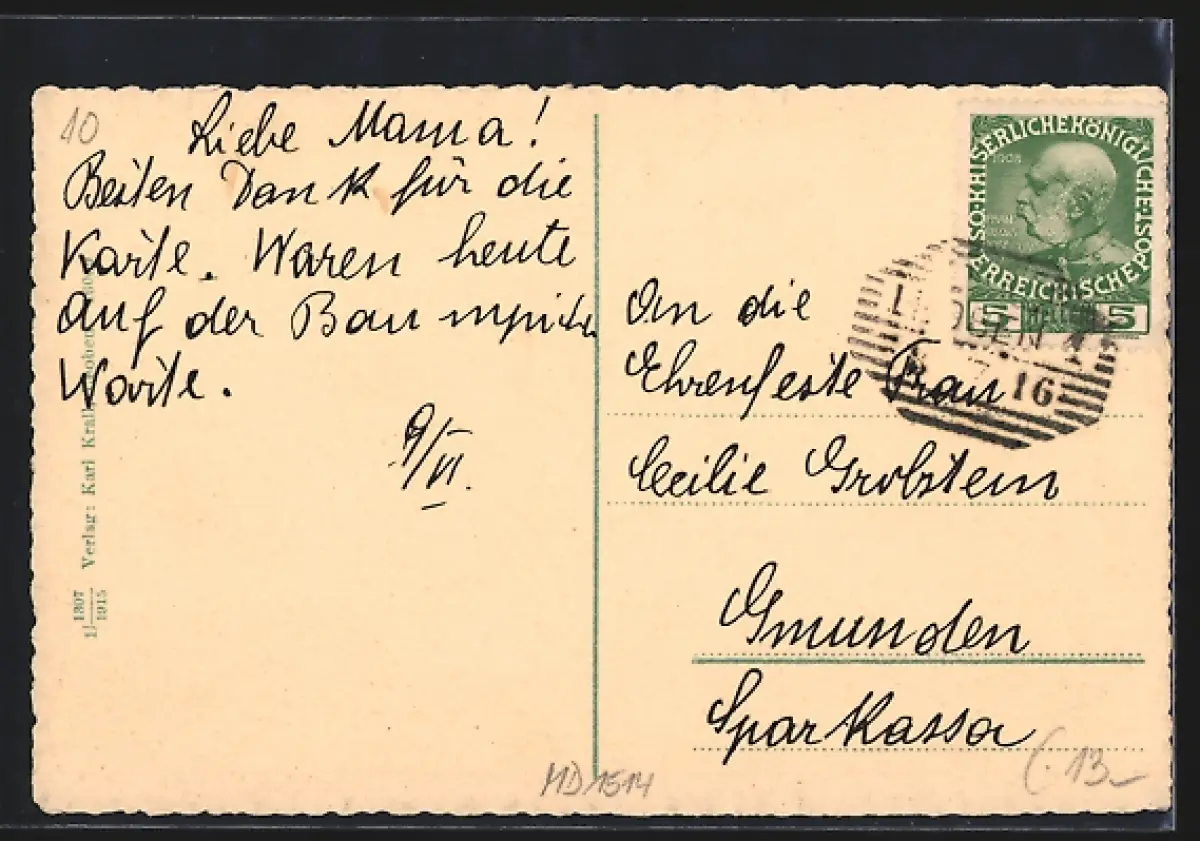 10
Liebe Mama!
Besten Dank für die
Karte. Waren heute
auf der Baumgitz
Warte.
9/VI.
1307
1) 1915
Verlag: Karl Krall
KAISERLICHE KÖNIGLICHE ÖSTERREICHISCHE POST
1908
5 5
16
An die
Ehrenfeste Frau
Cecilie Grobstein
Gmunden
Sparkassa
MD1514
(.13